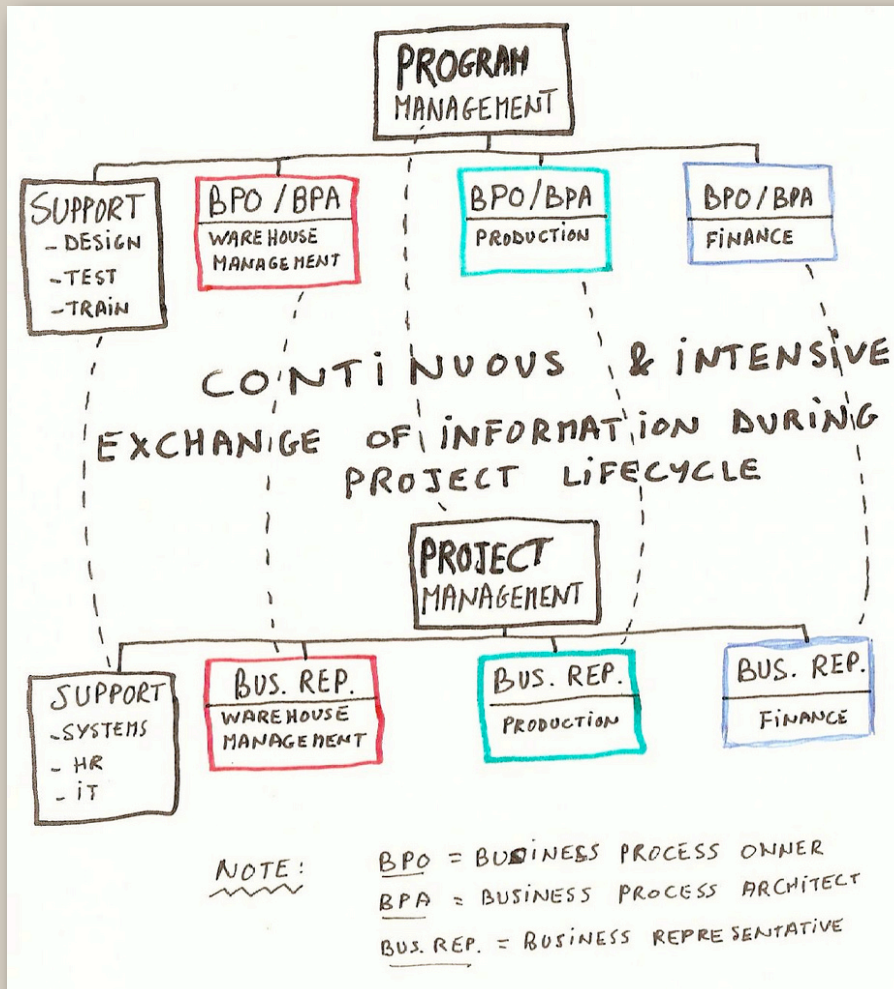 PROGRAM
MANAGEMENT
SUPPORT
- DESIGN
- TEST
- TRAIN
BPO / BPA
WAREHOUSE
MANAGEMENT
BPO/BPA
PRODUCTION
BPO/BPA
FINANCE
CONTINUOUS & INTENSIVE
EXCHANGE OF INFORMATION DURING
PROJECT LIFECYCLE
PROJECT
MANAGEMENT
SUPPORT
- SYSTEMS
- HR
- IT
BUS. REP.
WAREHOUSE
MANAGEMENT
BUS. REP.
PRODUCTION
BUS. REP.
FINANCE
NOTE:
BPO = BUSINESS PROCESS OWNER
BPA = BUSINESS PROCESS ARCHITECT
BUS. REP. = BUSINESS REPRESENTATIVE